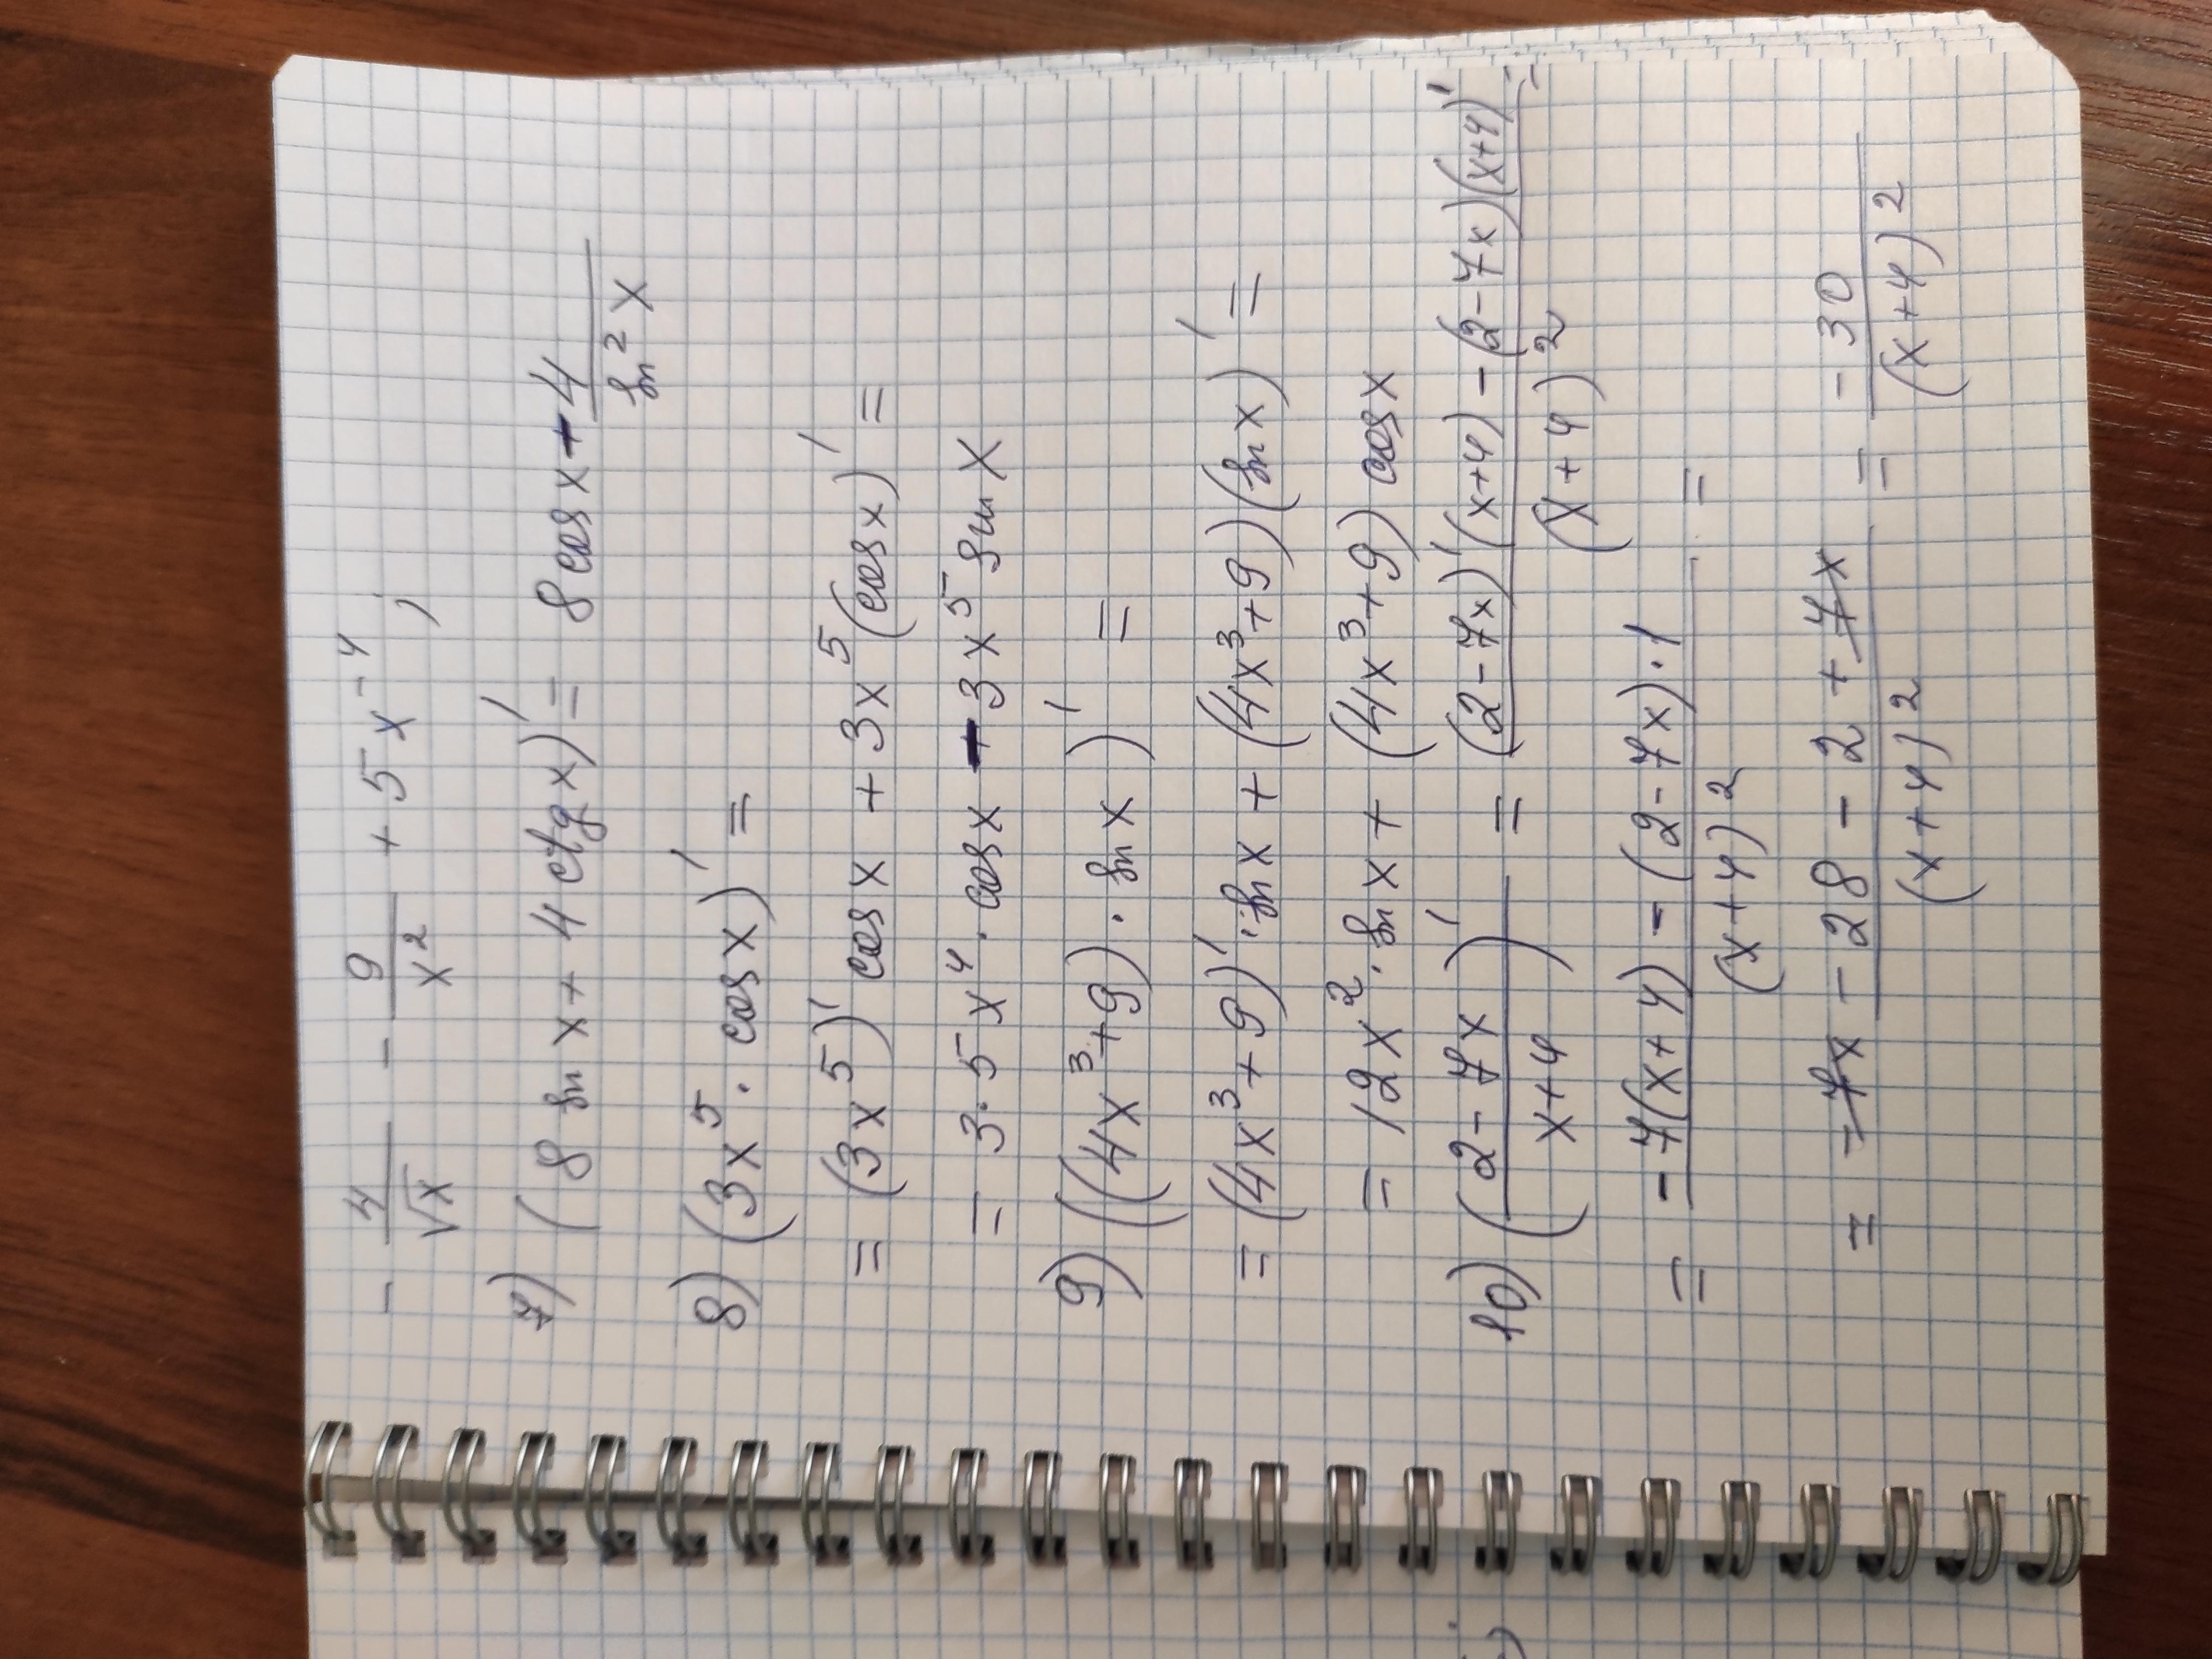 - 4/√x - 9/x² + 5x⁻⁴ ;
7) (8 sin x + 4 ctg x)' = 8 cos x - 4/sin² x
8) (3x⁵ · cos x)' =
= (3x⁵)' cos x + 3x⁵ (cos x)' =
= 3 · 5x⁴ · cos x - 3x⁵ sin x
9) ((4x³ + 9) · sin x)' =
= (4x³ + 9)' · sin x + (4x³ + 9)(sin x)' =
= 12x² · sin x + (4x³ + 9) cos x
10) ((2 - 7x)/(x + 4))' = ((2 - 7x)'(x + 4) - (2 - 7x)(x + 4)')/(x + 4)² =
= (-7(x + 4) - (2 - 7x) · 1)/(x + 4)² =
= (-7x - 28 - 2 + 7x)/(x + 4)² = -30/(x + 4)²